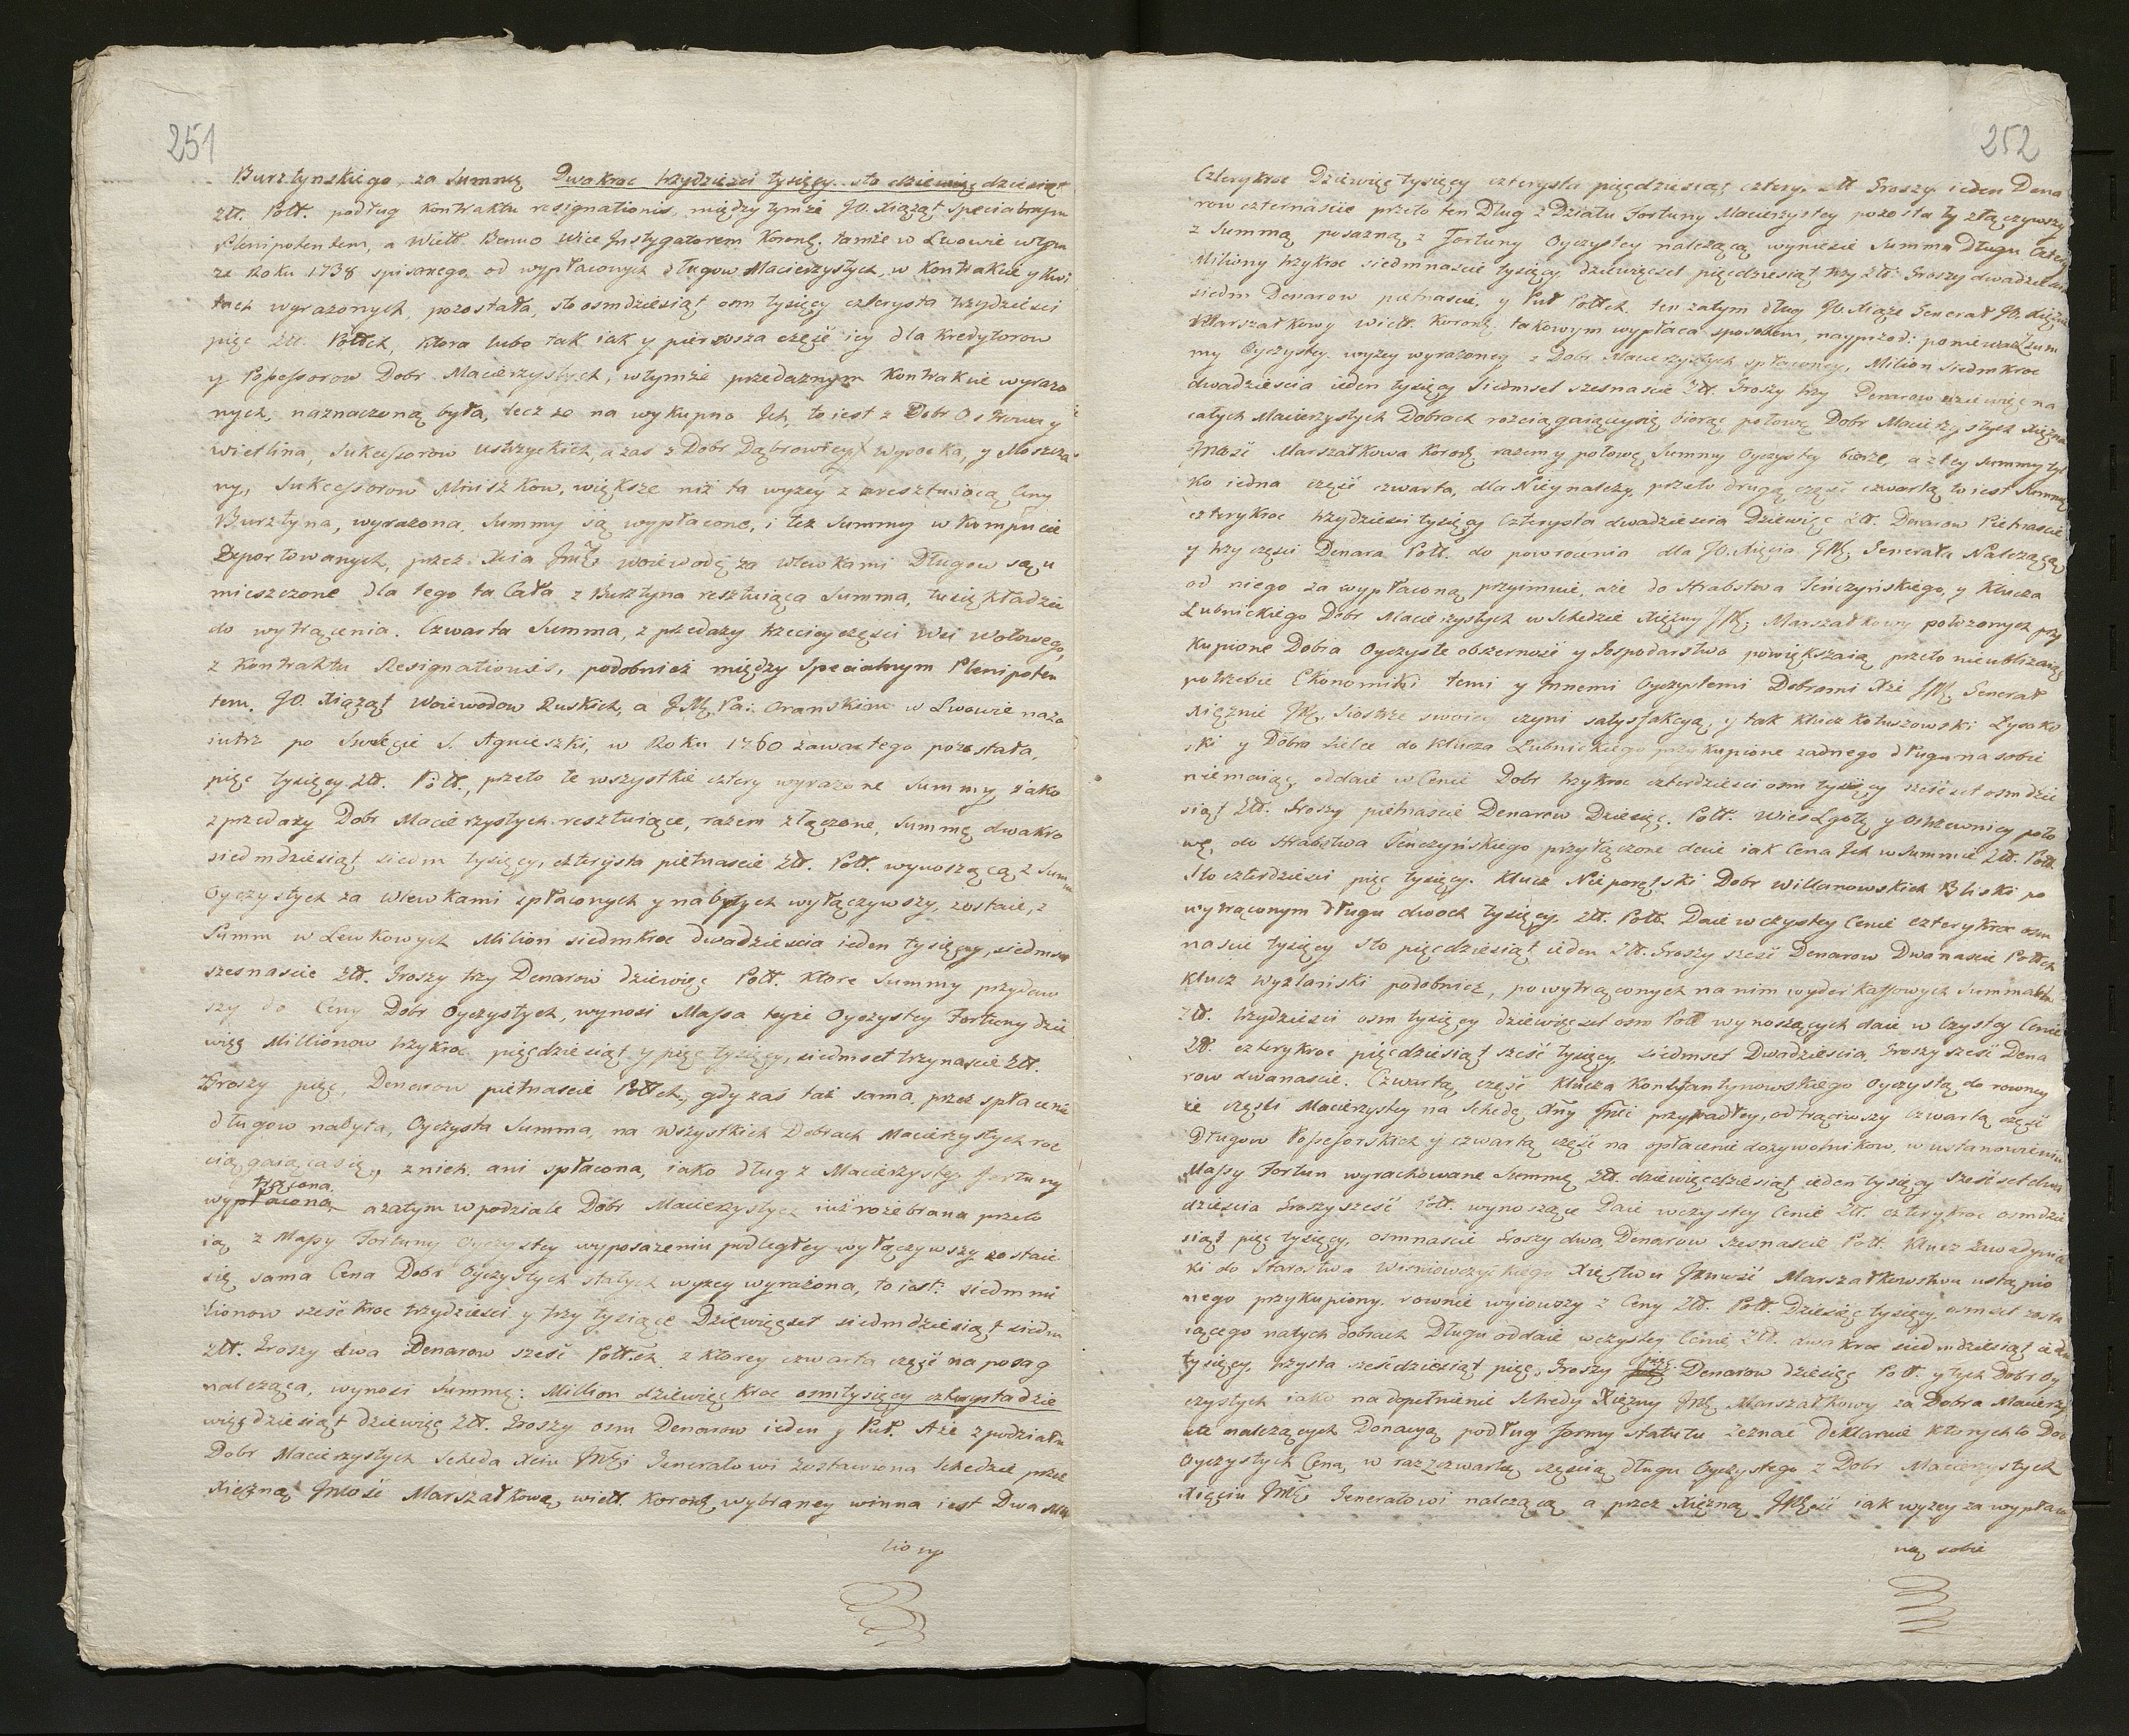 251
Burztynskiego, za Summę Dwakroc trzydziesci tysięcy sto dziewięcdziesiąt
złł. Poll. podług Kontraktu resignationis, między tymże JO. Xiążąt Specialnym
Plenipotentem, a Wiell. Benno Wice Instygatorem Koronn. tamże w Lwowie
ze Roku 1738 spisanego, od wypłaconych długow Macierzystych, w Kontrakcie y Kwi
tach wyrazonych, pozostała, sto osmdziesiąt osm tysięcy czterysta trzydziesci
pięc Złł. Pollch, ktora lubo tak iak y pierwsza część iey dla Kredytorow
y Possessorow Dobr Macierzystych, w tymże przedaznym Kontrakcie wyrazo
nych, naznaczoną była, lecz ze na wykupno Ich, to iest z Dobr Ostrowa y
Wietlina, Sukcessorow Ustrzyckich, a zas z Dobr Dąbrowicy, Wysocka, y Moszcza
ny, Sukcessorow Mniszkow, większe niż ta wyzey z resztuiącą Ceny
Burztyna, wyrazona, Summy są wypłacone, i też Summy w Kompucie
Exportowanych, przez Xcia Jmci Woiewodę za wlewkami Długow są u
mieszczone dla tego ta Cała z Burztyna resztuiąca Summa, tu się kładzie
do wytrącenia. Czwarta Summa, z przedazy trzeciey części Wsi Wołowego,
z Kontraktu Resignationis, podobnież między Specialnym Plenipoten
tem, JO. Xiążąt Woiewodow Ruskich, a JM Pa: Oranskim w Lwowie naza
iutrz po Swięcie S. Agnieszki, w Roku 1760 zawartego pozostała,
pięc tysięcy złł. Poll., przeto te wszystkie cztery wyrazone Summy, iako
z przedazy Dobr Macierzystych resztuiące, razem złączone, Summę dwakro
siedmdziesiąt siedm tysięcy, czterysta pietnascie Złł. Poll. wynoszącą z Summ
Oyczystych za Wlewkami spłaconych y nabytych wyłączywszy, zostaie, z
Summ wLewkowych Milion siedmkroc dwadziescia ieden tysięcy, siedmset
szesnascie Złł. Groszy trzy Denarow dziewięc Poll. Ktore Summy przydaw
szy do Ceny Dobr Oyczystych, wynosi Massa teyże Oyczystey Fortuny dzie
więg Millionow trzykroc pięcdziesiąt y pięc tysięcy, siedmset trzynascie Złł.
Groszy pięc, Denarow pietnascie Pollch, gdy zaś taż sama, przez spłacenie
długow nabyta, Oyczysta Summa, na wszystkich Dobrach Macierzystych roz
ciągaiąca się, z nich ani spłacona, iako dług z Macierzystey fortuny
trącona
wypłacona, a zatym w podziale Dobr Macierzystych iuż rozebrana przeto
ią z Massy Fortuny Oyczystey wyposazeniu podległey wyłączywszy zostaie
się sama Cena Dobr Oyczystych stałych wyzey wyrażona, to iest: siedm mil
lionow sześć kroc trzydziesci y trzy tysiące Dziewięcset siedmdziesiąt siedm
złł. Groszy dwa Denarow sześć Pollch z Ktorey czwarta część na posag
należąca, wynosi Summę: Million dziewięc kroc osmtysięcy czterysta dzie
więgdziesiąt dziewięc Złł. Groszy osm Denarow ieden y Puł. Aże z podziału
Dobr Macierzystych Scheda Xciu Jmci Generałowi zostawiona Schedzie przez
Xięzną Jmość Marszałkową wiell. Koronn. wybraney winna iest Dwa Mil
liony
252
Czterykroc Dziewięc tysięcy czterysta pięcdziesiąt cztery złł Groszy ieden Dena
row czternascie przeto ten Dług z Działu Fortuny Macierzystey pozostały złączywszy
z Summą posazną z Fortuny Oyczystey należącą wyniesie Summa Długu Cztery
Miliony trzykroc siedmnascie tysięcy dziewięcset pięcdziesiąt trzy złł. Groszy dwadziescia
siedm Denarow pietnascie, y Puł Pollch. ten zatym dług JO. Xiąże Generał JO. Xięznie
Marszałkowy Wiell. Koronn. takowym wypłaca sposobem, nayprzod: poniewaz Sum
my Oyczystey wyzey wyrazoney z Dobr Macierzystych spłaconey, Milion siedmkroc
dwadziescia ieden tysięcy siedmset szesnascie Złł. Groszy trzy Denarow dziewięc na
całych Macierzystych Dobrach rościągaiącey się, biorąc połowę Dobr Macierzystych Xięzna
Jmość Marszałkowa Koronn. razem y połowę Summy Oyczystey bierze, a z tey Summy tyl
ko iedna część czwarta, dla Niey należy, przeto drugą część czwartą to iest Summę
czterykroc trzydziesci tysięcy Czterysta dwadziescia Dziewięc złł. Denarow Pietnascie
y trzy części Denara Poll. do powrocenia dla JO. Xięcia JM. Generała Należącą
od niego za wypłaconą przyimuie, aże do Hrabstwa Tenczyńskiego, y Klucza
Łubnickiego Dobr Macierzystych w Schedzie Xięzny JM. Marszałkowy połozonych przy
kupione Dobra Oyczyste obszernosć y Gospodarstwo powiększaią, przeto nieubliżaiąc
potrzebie Ekonomiki temi y Innemi Oyczystemi Dobrami Xże JM. Generał
Xięznie JM. Siostrze swoiey czyni satysfakcyą, y tak Klucz Kotuszowski Łysako
ski y Dobra Sielce do Klucza Łubnickiego przykupione zadnego długu na sobie
niemaiąc, oddaie w Cenie Dobr trzykroc czterdziesci osm tysięcy sześć set osmdzie
siąt złł. Groszy pietnascie Denarow Dziesięc Poll. Wieś Lgotę y Ostrewnicy poło
wę, do Hrabstwa Tenczyńskiego przyłączone daie iak Cena Ich w Summie Złł. Poll
Sto czterdziesci pięc tysięcy. Klucz Nieporąlski Dobr Willanowskich Bliski po
wytrąconym długu dwoch tysięcy, złł. Poll. Daie w czystey Cenie czterykroc osm
nascie tysięcy sto pięcdziesiąt ieden Złł. Groszy sześć Denarow Dwanascie Pollch
Klucz Wyzlański podobniez, po wytrąconych na nim wyderkaffowych Summach
złł. trzydziesci osm tysięcy dziewięcset osm Poll wynoszących daie w Czystey Cenie
Złł. czterykroc pięcdziesiąt sześć tysięcy, siedmset Dwadziescia, Groszy sześć Dena
row dwanascie. Czwartą część Klucza Konstantynowskiego Oyczystą do rowney
że części Macierzystey na Schedę Xny Jmci przypadłey, odtrąciwszy czwartą część
Długow Possessorskich y czwartą część na opłacenie dozywotnikow, w ustanowieniu
Massy Fortun wyrachowane Summę złł. dziewięcdziesiąt ieden tysięcy sześć set dwa
dziescia Groszy sześć Poll. wynoszące Daie w czystey Cenie Złł. czterykroc osmdzie
siąt pięc tysięcy, osmnascie Groszy dwa, Denarow szesnascie Poll. Klucz Zawadyniec
ki do Starostwa Wisniowczykiego Xięstwu Jchmość Marszałkowstwu ustąpio
nego przykupiony rownie wyiowszy z Ceny Złł. Poll. Dziesięc tysięcy, osmset zosta
iącego na tych dobrach Długu oddaie w czystey Cenie złł. dwakroc siedmdziesiąt ieden
tysięcy, trzysta sześcdziesiąt pięc, Groszy Denarow dziesięc Poll. y tych Dobr Oy
czystych iako na dopełnienie Schedy Xięzny JM. Marszałkowy za Dobra Macierzy
ste należących Donacyą podług formy Statutu zeznać deklaruie Ktorych to Dob
Oyczystych Cena, w raz z czwartą częscią długu Oyczystego z Dobr Macierzystych
Xięciu Jmci Generałowi należącą a przez Xięzną JMość iak wyzey za wypłaco
ną sobie